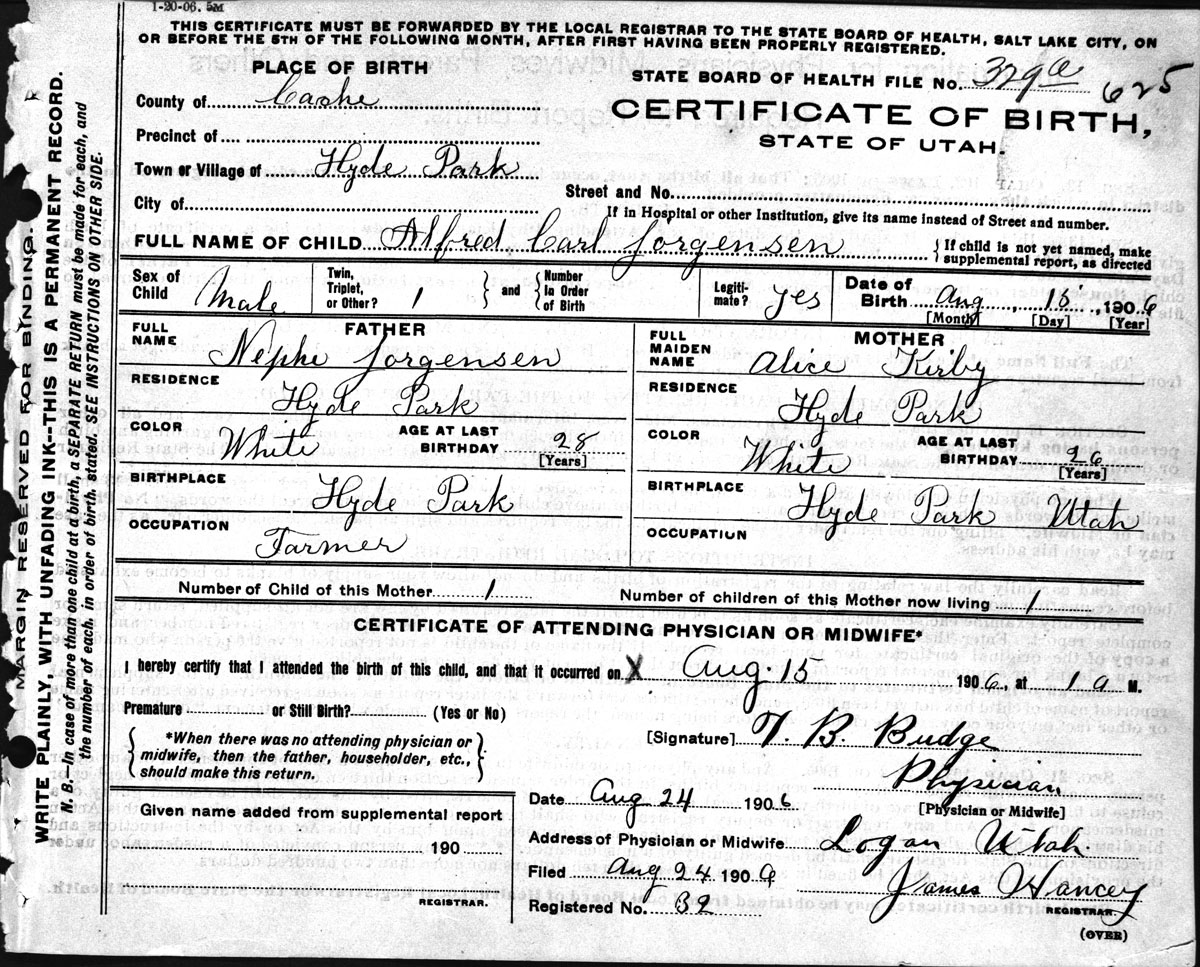 1-20-06. 5M
THIS CERTIFICATE MUST BE FORWARDED BY THE LOCAL REGISTRAR TO THE STATE BOARD OF HEALTH, SALT LAKE CITY, ON
OR BEFORE THE 5TH OF THE FOLLOWING MONTH, AFTER FIRST HAVING BEEN PROPERLY REGISTERED.
PLACE OF BIRTH
STATE BOARD OF HEALTH FILE No. 329a 625
County of Cache
CERTIFICATE OF BIRTH,
STATE OF UTAH.
Precinct of
Town or Village of Hyde Park
Street and No.
City of
If in Hospital or other Institution, give its name instead of Street and number.
FULL NAME OF CHILD Alfred Carl Jorgensen { If child is not yet named, make
supplemental report, as directed
Sex of Child Male
Twin, Triplet, or Other? 1 } and { Number In Order of Birth
Legitimate? Yes
Date of Birth Aug 15, 1906
[Month] [Day] [Year]
FATHER
FULL NAME Nephi Jorgensen
RESIDENCE Hyde Park
COLOR White AGE AT LAST BIRTHDAY 28 [Years]
BIRTHPLACE Hyde Park
OCCUPATION Farmer
MOTHER
FULL MAIDEN NAME Alice Kirby
RESIDENCE Hyde Park
COLOR White AGE AT LAST BIRTHDAY 26 [Years]
BIRTHPLACE Hyde Park Utah
OCCUPATION
Number of Child of this Mother 1 Number of children of this Mother now living 1
CERTIFICATE OF ATTENDING PHYSICIAN OR MIDWIFE*
I hereby certify that I attended the birth of this child, and that it occurred on X Aug. 15 1906, at 1 a M.
Premature or Still Birth? (Yes or No)
{ *When there was no attending physician or
midwife, then the father, householder, etc.,
should make this return. }
[Signature] T. B. Budge
Physician
[Physician or Midwife]
Date Aug 24 1906
Given name added from supplemental report
190
REGISTRAR.
Address of Physician or Midwife Logan Utah
Filed Aug 24 1906 James Hancey
REGISTRAR.
Registered No. 32
(OVER)
MARGIN RESERVED FOR BINDING.
WRITE PLAINLY, WITH UNFADING INK--THIS IS A PERMANENT RECORD.
N. B. In case of more than one child at a birth, a SEPARATE RETURN must be made for each, and
the number of each, in order of birth, stated. SEE INSTRUCTIONS ON OTHER SIDE.